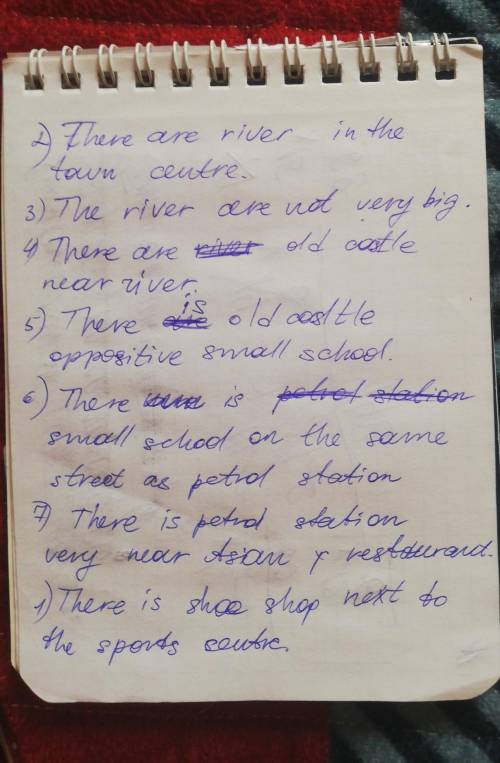 2) There are river in the
town centre.
3) The river are not very big.
4) There are river old castle
near river.
5) There are is old castle
oppositive small school.
6) There is petrol station
small school on the same
street as petrol station
7) There is petrol station
very near Asian restaurand.
1) There is shoe shop next to
the sports centre.